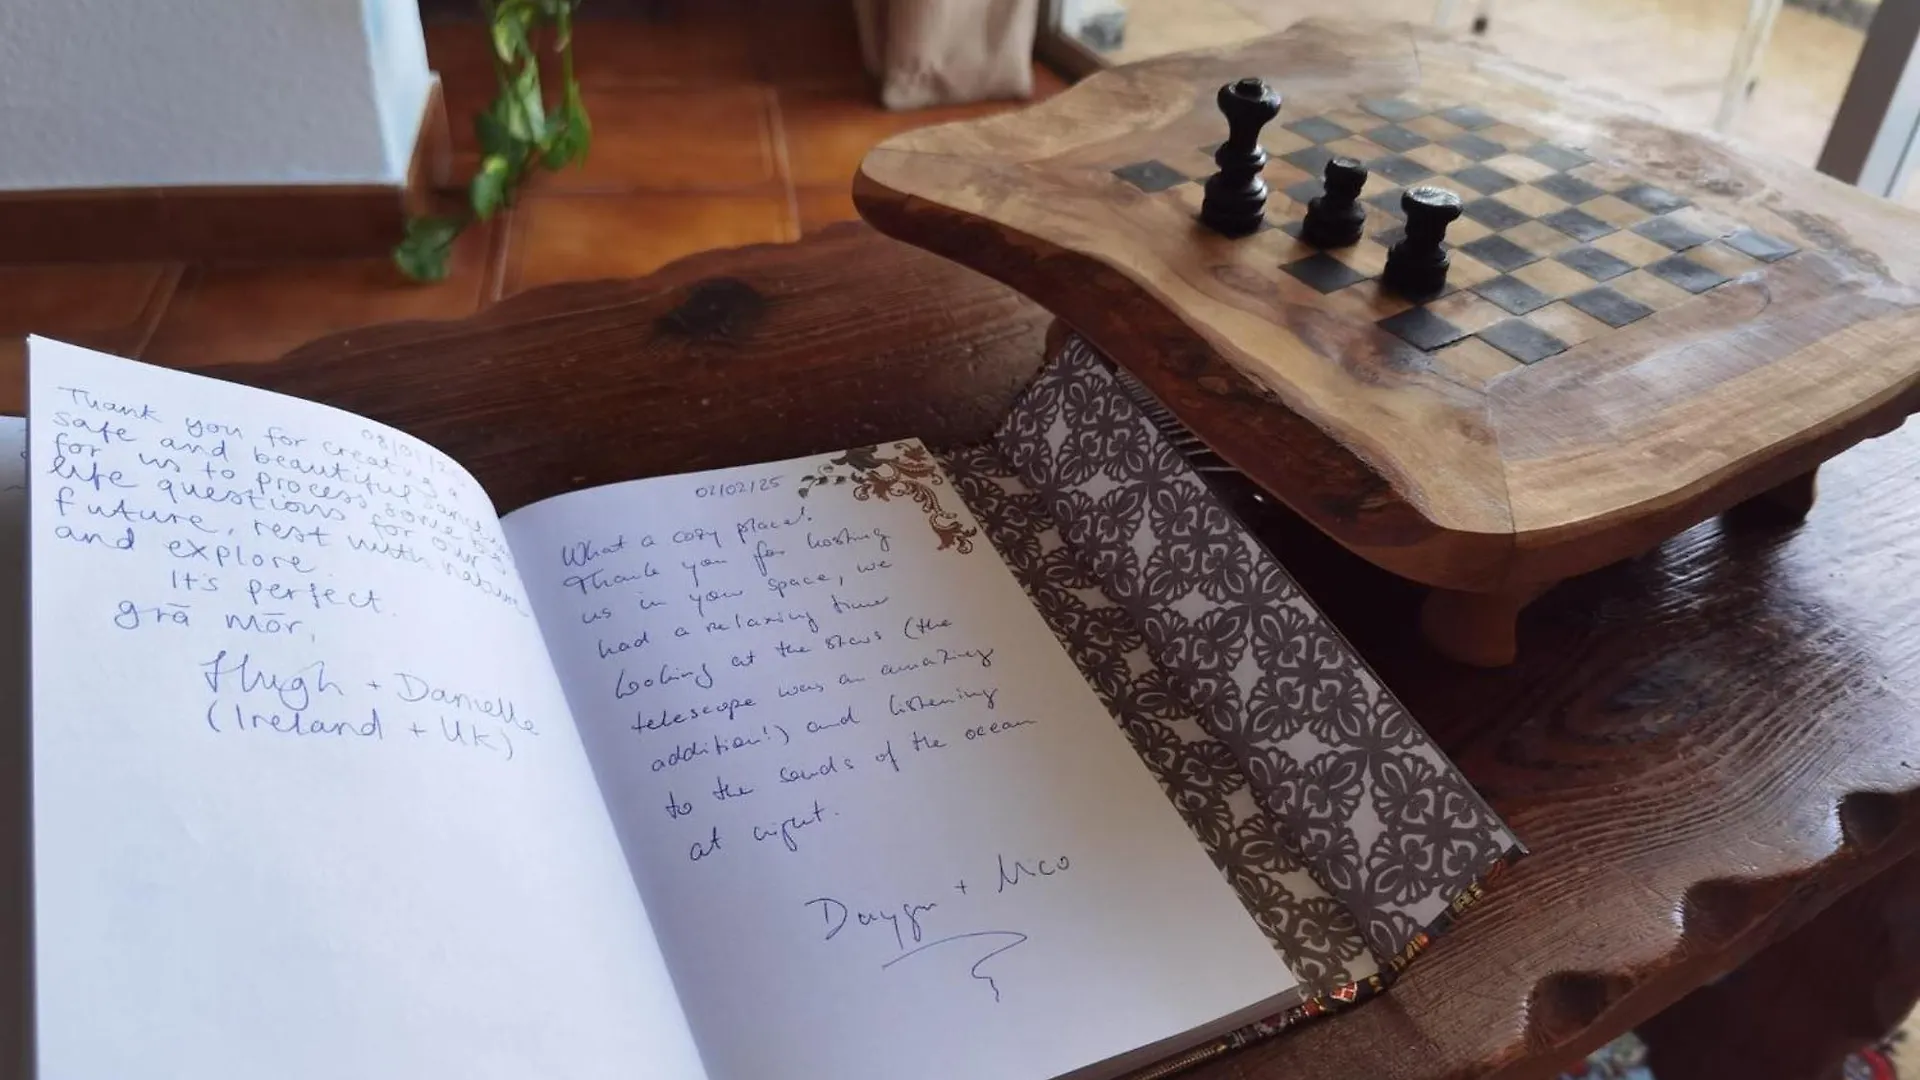 08/01/2
Thank you for creating a
safe and beautiful
for us to process some
life questions for our
future, rest with nature
and explore
It's perfect.
grā mōr,
Hugh + Danielle
(Ireland + UK)
02/02/25
What a cozy place!
Thank you for hosting
us in your space, we
had a relaxing time
looking at the stars (the
telescope was an amazing
addition!) and listening
to the sounds of the ocean
at night.
+ Nico